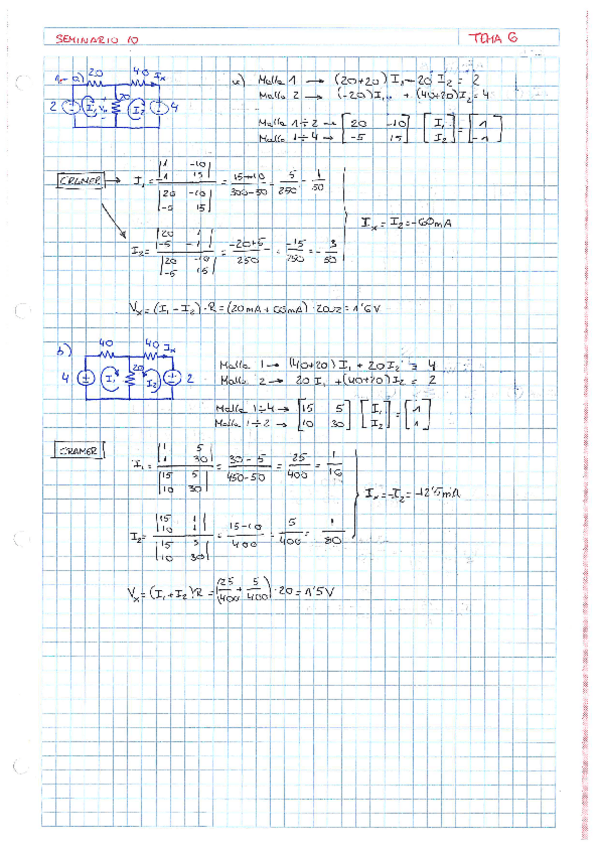 SEMINARIO 10
TEMA 6
1- a)
20
40
Ix
2
I1
Vx
20
I2
4
a) Malla 1 → (20+20) I1 - 20 I2 = 2
Malla 2 → (-20) I1 + (40+20) I2 = 4
Malla 1÷2 → [20 -10] [I1] = [1]
Malla 1÷4 → [-5 15] [I2] [-1]
CRAMER → I1 = |1 -10| |-1 15| / |20 -10| |-5 15| = 15-10 / 300-50 = 5/250 = 1/50
I2 = |20 1| |-5 -1| / |20 -10| |-5 15| = -20+5 / 250 = -15/250 = -3/50
Ix = I2 = -60mA
Vx = (I1 - I2) · R = (20mA + 60mA) · 20Ω = 1'6V
b)
40
40
Ix
4
I1
20
I2
2
Malla 1 → (40+20) I1 + 20 I2 = 4
Malla 2 → 20 I1 + (40+20) I2 = 2
Malla 1÷4 → [15 5] [I1] = [1]
Malla 1÷2 → [10 30] [I2] [1]
CRAMER
I1 = |1 5| |1 30| / |15 5| |10 30| = 30-5 / 450-50 = 25/400 = 1/16
I2 = |15 1| |10 1| / |15 5| |10 30| = 15-10 / 400 = 5/400 = 1/80
Ix = -I2 = -12'5mA
Vx = (I1 + I2) · R = (25/400 + 5/400) · 20 = 1'5V